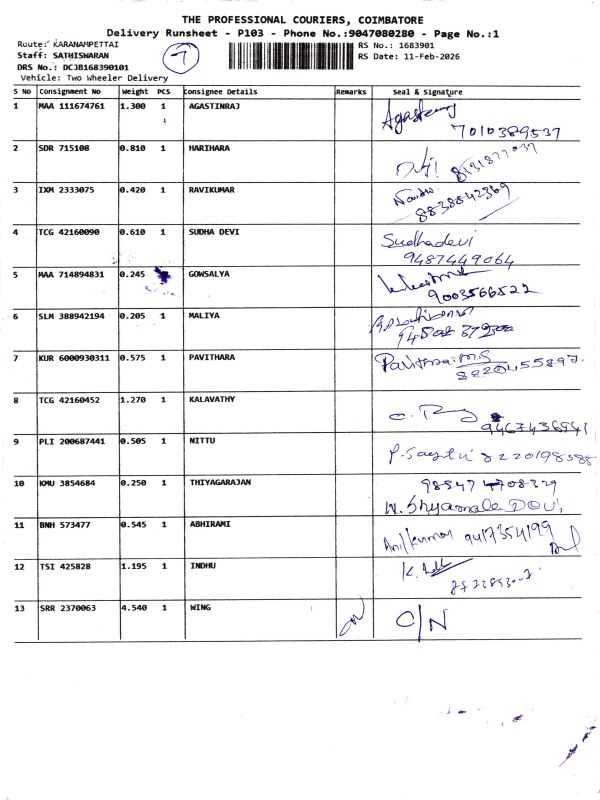 THE PROFESSIONAL COURIERS, COIMBATORE
Delivery Runsheet - P103 - Phone No.:9047080280 - Page No.:1
Route: KARANAMPETTAI
7
RS No.: 1683901
Staff: SATHISWARAN
RS Date: 11-Feb-2026
DRS No.: DCJB168390101
Vehicle: Two Wheeler Delivery
S No Consignment No Weight PCS Consignee Details Remarks Seal & Signature
1 MAA 111674761 1.300 1 AGASTINRAJ
7010389537
2 SDR 715108 0.810 1 HARIHARA
8131877037
3 IXM 2333075 0.420 1 RAVIKUMAR
8838842369
4 TCG 42160090 0.610 1 SUDHA DEVI Sudhadevi
9487449064
5 MAA 714894831 0.245 GOWSALYA
9003566522
6 SLM 388942194 0.205 1 MALIYA
7 KUR 6000930311 0.575 1 PAVITHARA Pavithra.M.S
8 TCG 42160452 1.270 1 KALAVATHY
9 PLI 200687441 0.505 1 NITTU
10 KMU 3854684 0.250 1 THIYAGARAJAN
11 BNH 573477 0.545 1 ABHIRAMI Anilkumar 9417354199
12 TSI 425828 1.195 1 INDHU
13 SRR 2370063 4.540 1 WING C/N